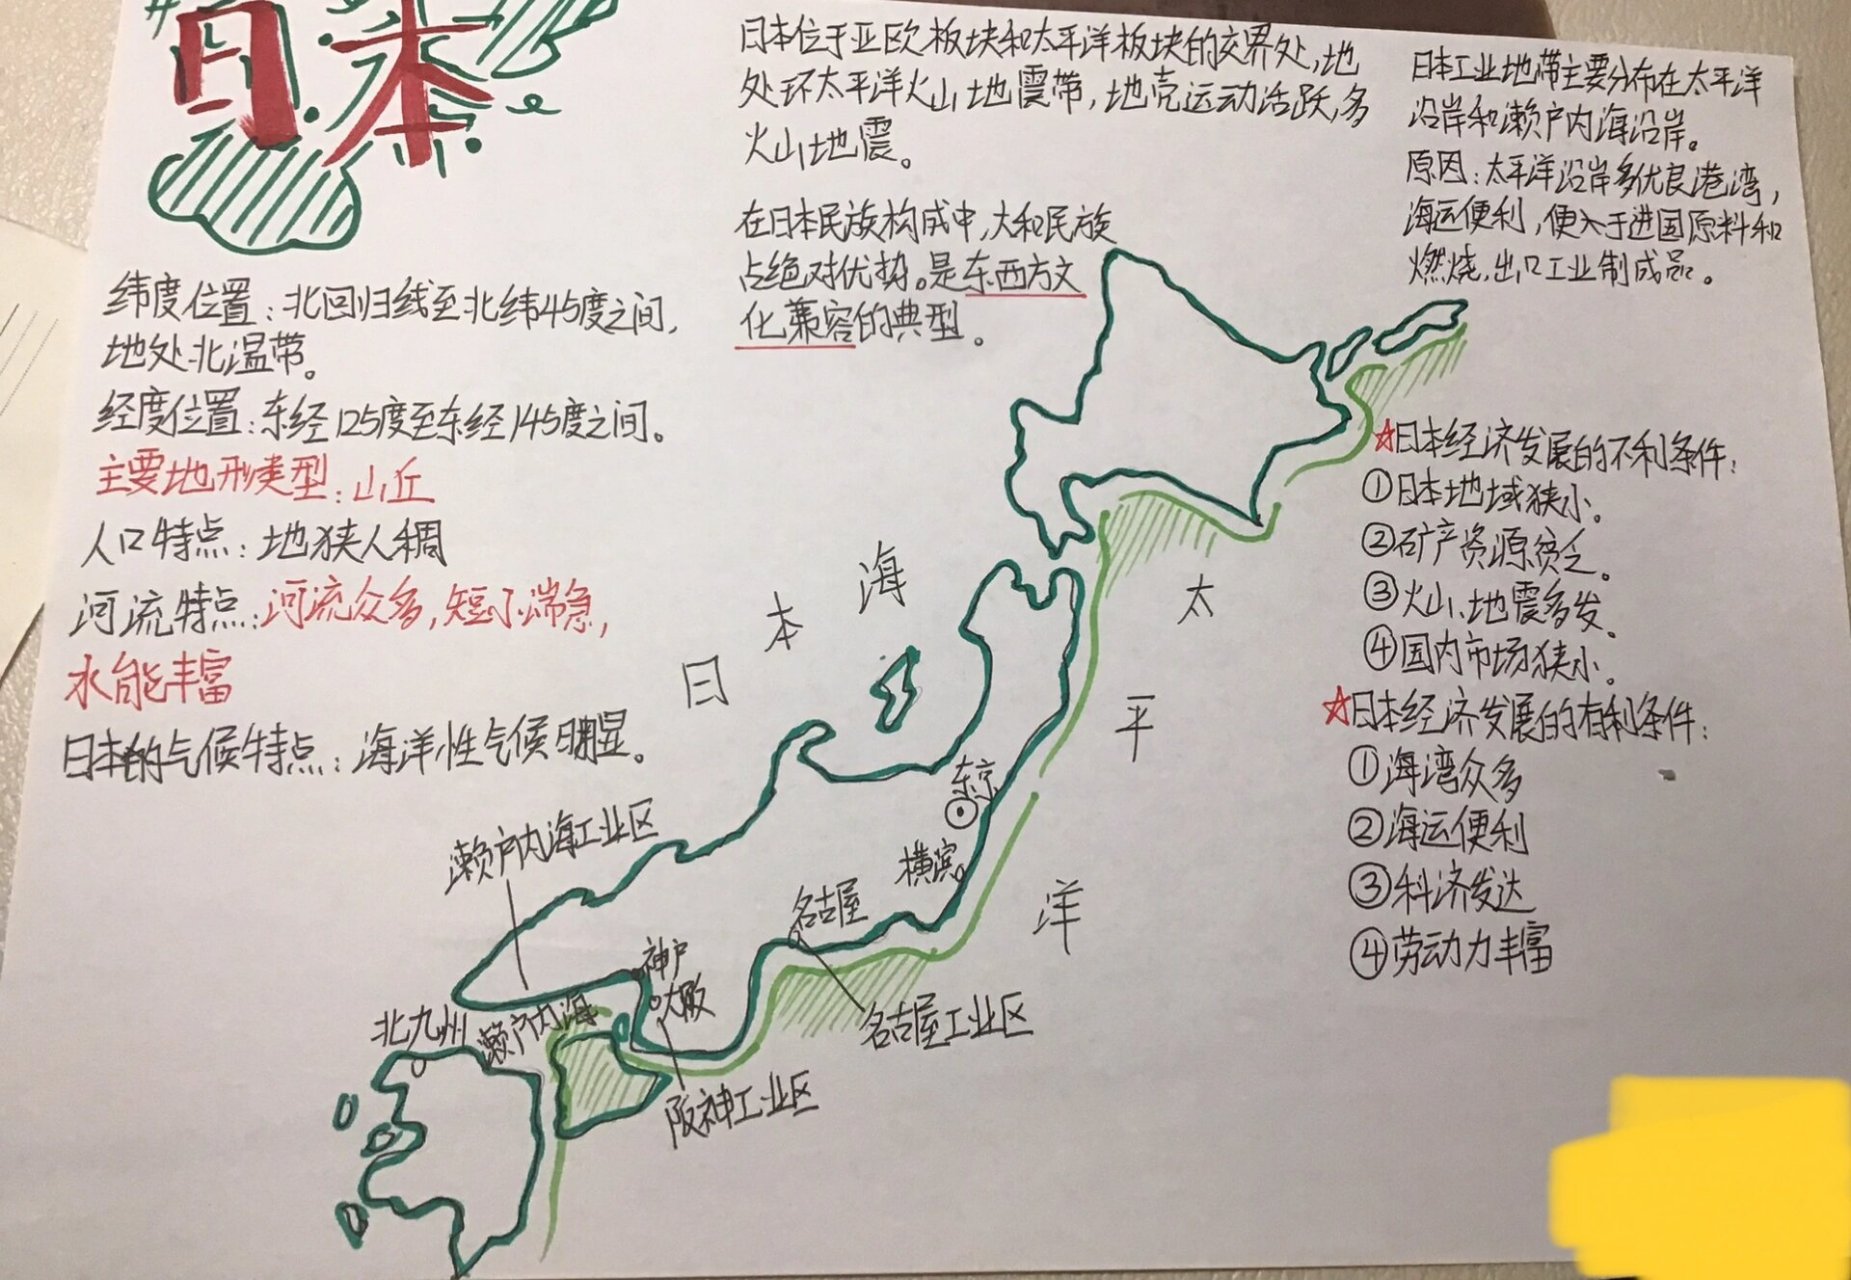 日本
日本位于亚欧板块和太平洋板块的交界处,地
处环太平洋火山地震带,地壳运动活跃,多
火山地震。
在日本民族构成中,大和民族
占绝对优势。是东西方文
化兼容的典型。
日本工业地带主要分布在太平洋
沿岸和濑户内海沿岸。
原因:太平洋沿岸多优良港湾,
海运便利,便入于进国原料和
燃烧,出口工业制成品。
纬度位置:北回归线至北纬45度之间,
地处北温带。
经度位置:东经125度至东经145度之间。
主要地形类型:山丘
人口特点:地狭人稠
河流特点:河流众多,短小湍急,
水能丰富
日本的气候特点:海洋性气候明显。
☆日本经济发展的不利条件:
①日本地域狭小。
②矿产资源贫乏。
③火山、地震多发。
④国内市场狭小。
☆日本经济发展的有利条件:
①海湾众多
②海运便利
③科济发达
④劳动力丰富
日本海
太平洋
东京
横滨
名古屋
名古屋工业区
濑户内海工业区
神户
大阪
阪神工业区
濑户内海
北九州